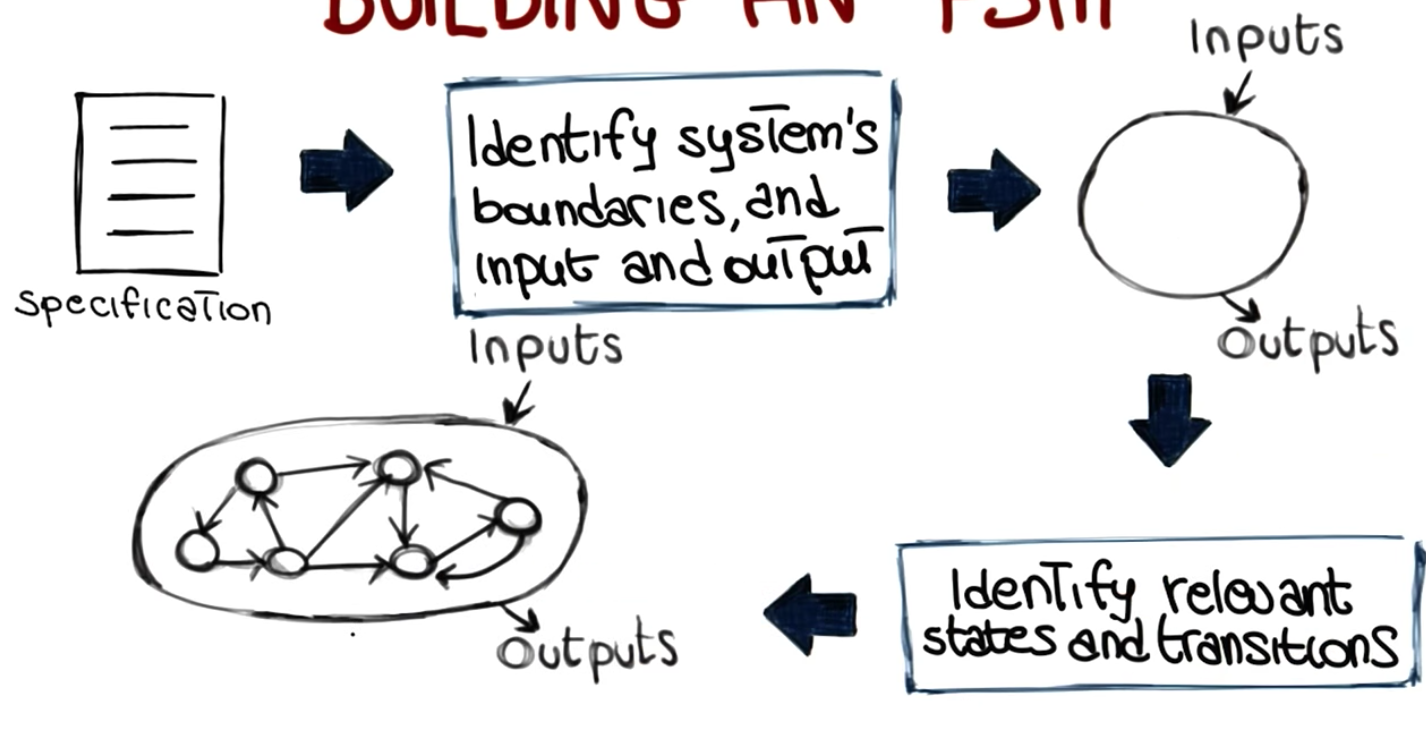 BUILDING AN FSM
Inputs
Specification
Identify system's
boundaries, and
input and output
Outputs
Inputs
Outputs
Identify relevant
states and transitions